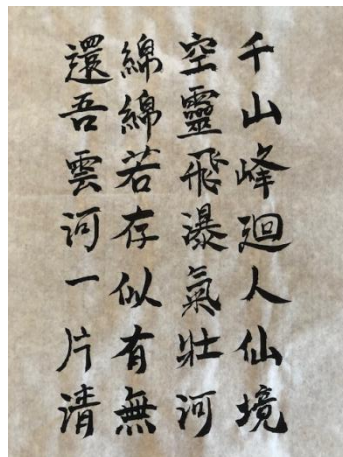 千山峰廻人仙境
空靈飛瀑氣壯河
綿綿若存似有無
還吾雲河一片清